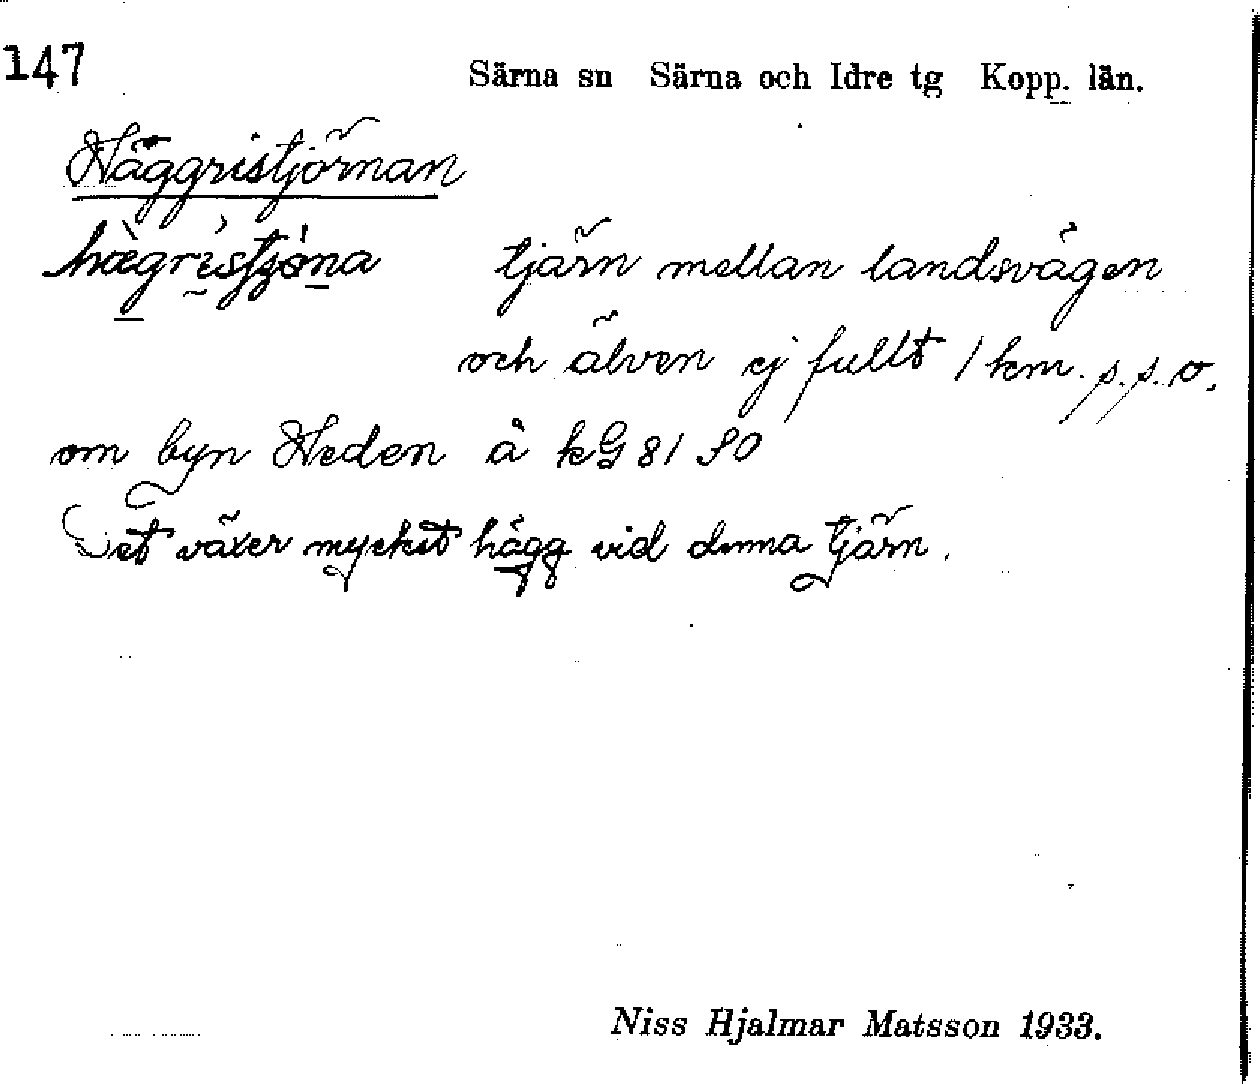 147
Särna sn Särna och Idre tg Kopp. län.
Häggristjörnan
hægristjöna tjärn mellan landsvägen
och älven ej fullt 1 km. s.s.o.
om byn Heden å kG 81 SO
Det växer mycket hägg vid denna tjärn.
Niss Hjalmar Matsson 1933.